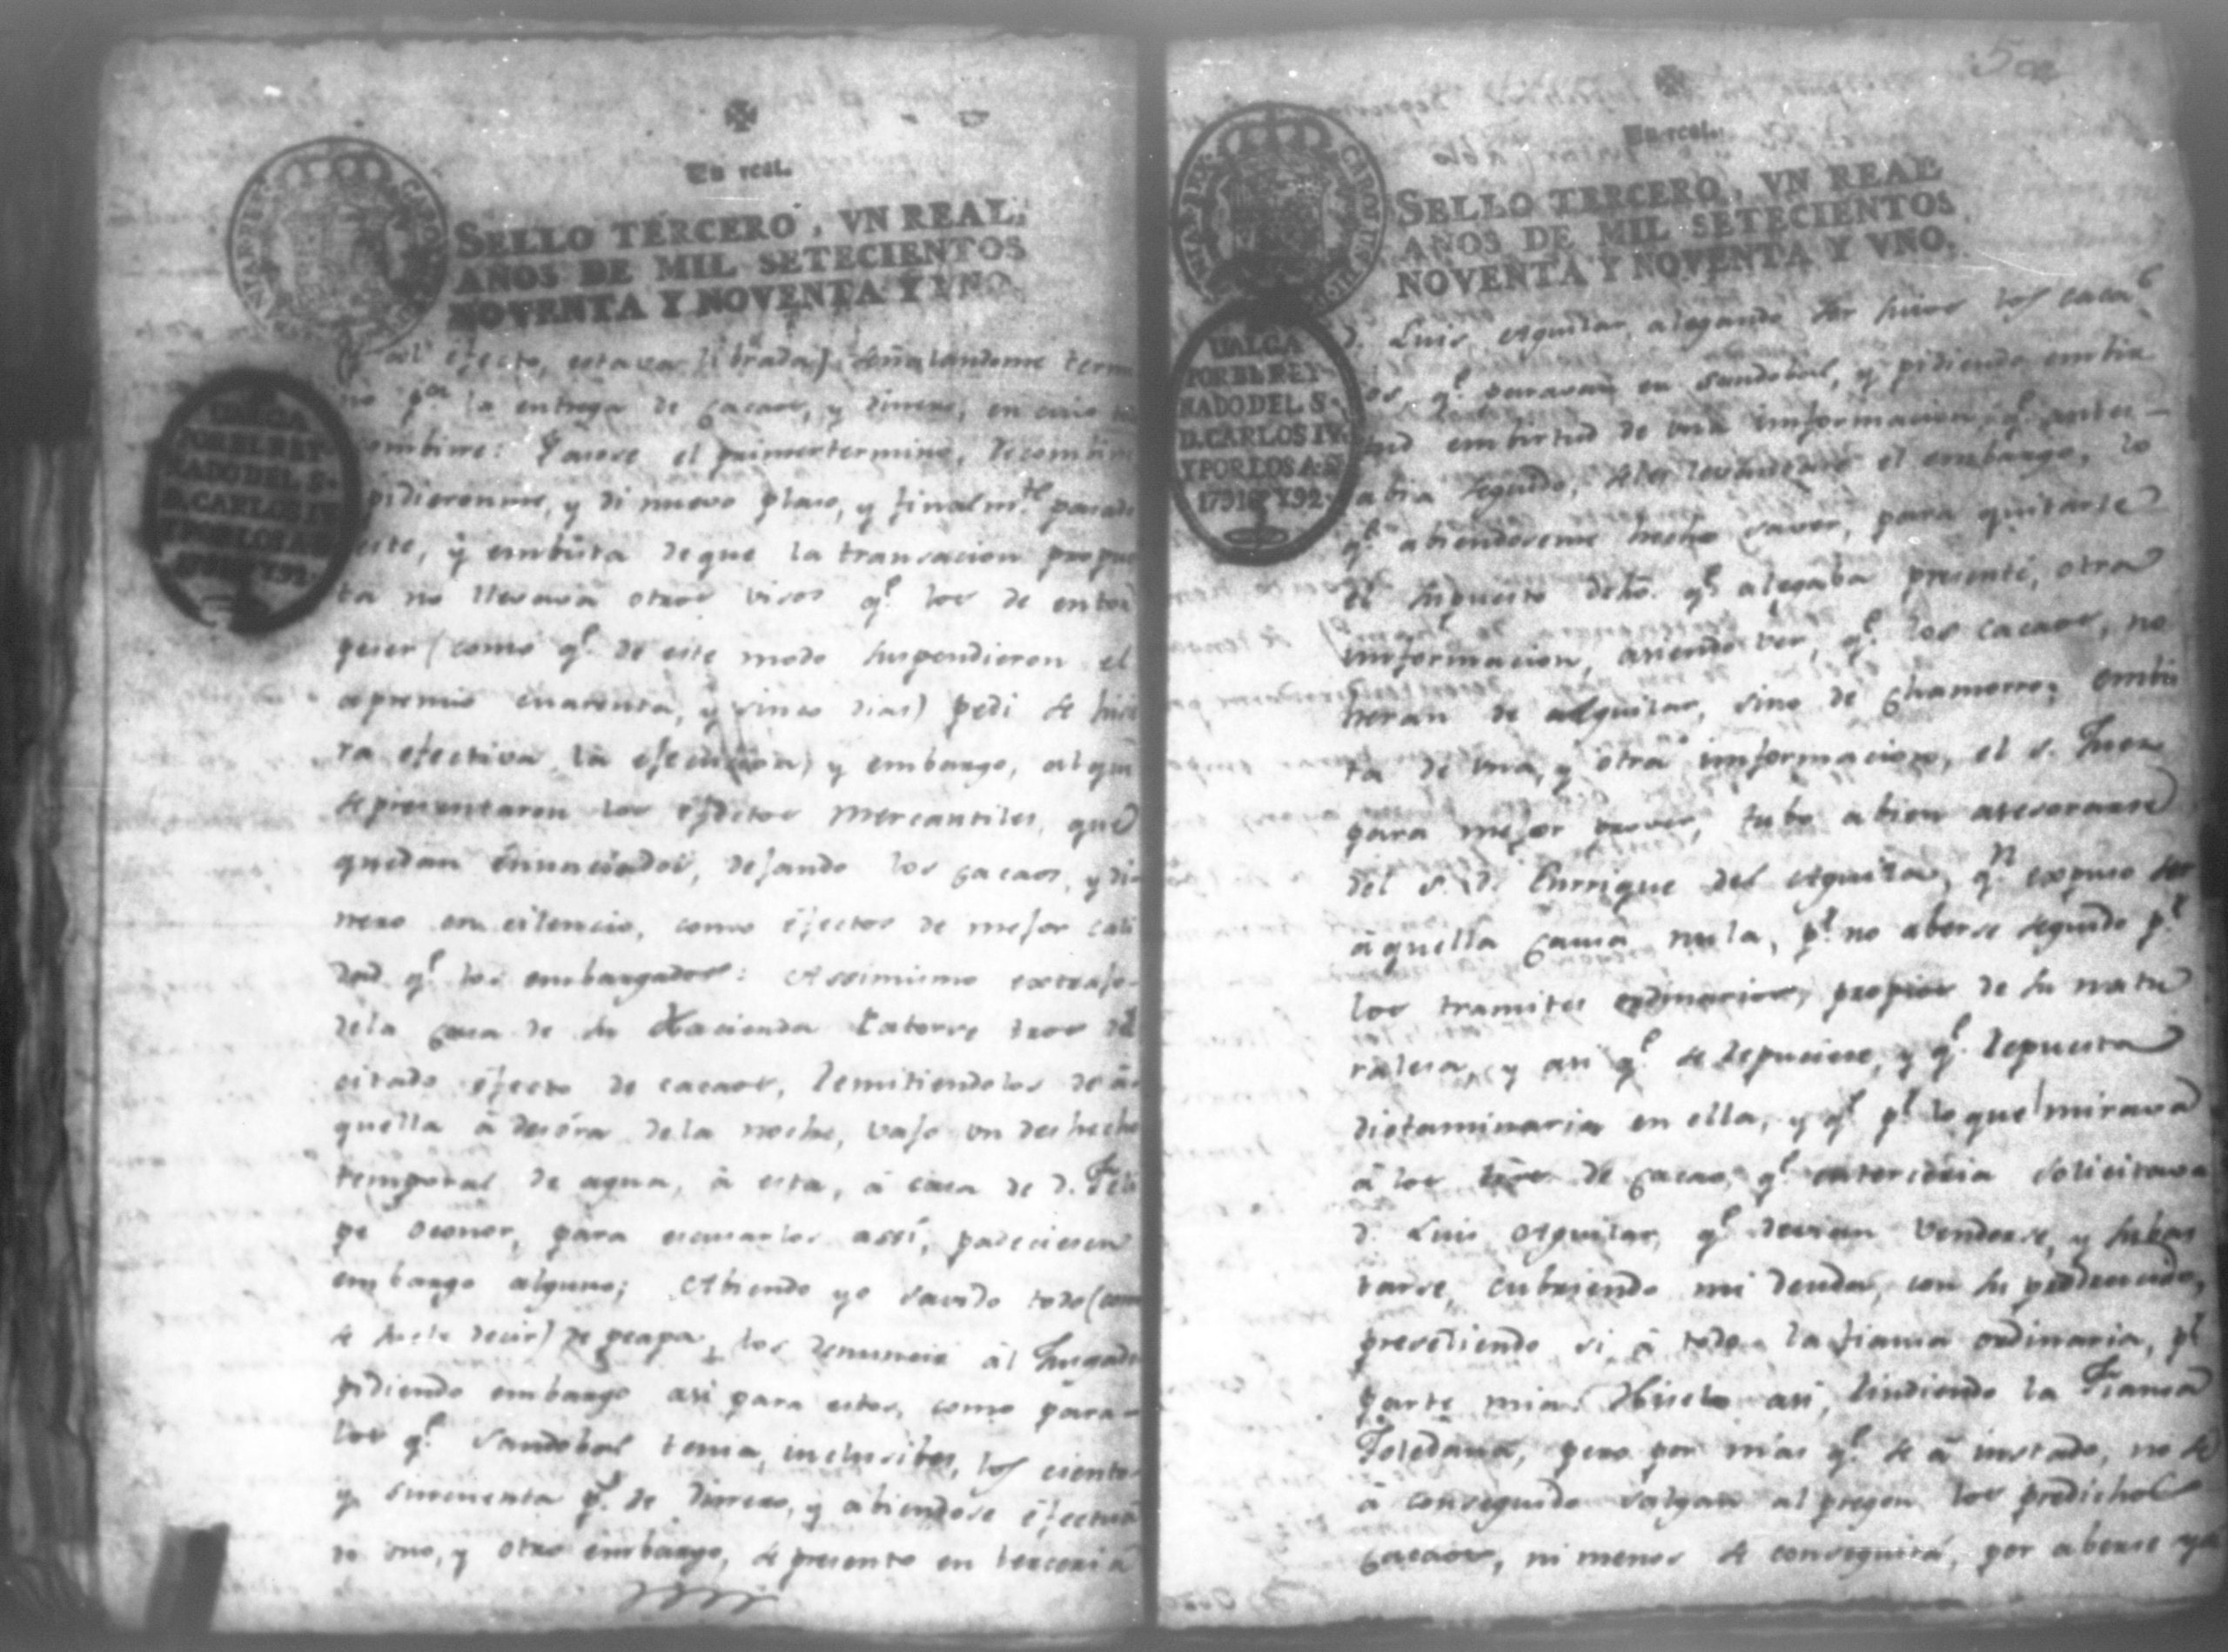 Un real.
SELLO TERCERO, VN REAL,
AÑOS DE MIL SETECIENTOS
NOVENTA Y NOVENTA Y VNO.
VALGA
POR EL REY-
NADO DEL S.
D. CARLOS IV.
Y POR LOS A.S
efecto, estava librada) señalandome termi
no pa. la entrega de cacaos, y dinero, en cuio
combine: Pasose el primer termino, Recombine
pidieronme, y di nuevo plaso, y finalmte. parado
este, y embista de que la transacion propues
ta no llevava otros visos qe. los de entor
peser (como qe. de este modo suspendieron el
apremio cuarenta, y sinco dias) pedi se hicie
ra efectiva la efecucion y embargo, al que
se presentaron los efectos mercantiles, que
quedan enunciados, dejando los cacaos, y di
nero en cilencio, como efectos de mejor cali
dad qe. los embargados: Assimismo extrajo
de la casa de su Hacienda Catorse del
citado efecto de cacaos, Remitiendolos de a
quella â desóra de la noche, vajo un deshecho
temporal de agua, â esta, â casa de D. Feli
pe Oconor, para escusarlos assi, padeciesen
embargo alguno; Abiendo yo savido todo (como
se suele decir) de peapa, los denuncié âl Jusgado
pidiendo embargo asi para estos, como para
los qe. Sandobal tenia, inclusibes, los ciento
y sincuenta ps. de Dinero, y abiendose efectua
do uno, y otro embargo, se presento en terceria
Un real.
SELLO TERCERO, VN REAL,
AÑOS DE MIL SETECIENTOS
NOVENTA Y NOVENTA Y VNO.
VALGA
POR EL REY-
NADO DEL S.
D. CARLOS IV.
Y POR LOS A.S
1791 Y 92.
D. Luis Aguilar, alegando ser suios los caca
os, qe. paravan en Sandobal, y pidiendo embir
tud embirtud de una imformacion qe. antes
abia seguido, se les levantase el embargo, lo
qe. abiendoseme hecho saver, para quitarle
el supuesto dho. qe. alegaba presenté, otra
imformacion, asiendo ver, qe. los cacaos, no
heran de Aguilar, sino de Chamorro; embis
ta de una, y otra imformacion, el S. Juez
para mejor prover, tubo abien asesorarse
del S. D. Enrrique del Aguila, qn. expuso ser
âquella causa nula, pr. no aberse seguido pr.
los tramites ordinarios, propios de su natu
ralesa, y asi qe. se Repuciese, y qe. Repuesta
dictaminaria en ella, y qe. pr. lo que mirava
â los de cacao, qe. solicitava
D. Luis Aguilar, qe. devian Venderse, y subas
tarse, cubriendo mi deuda, con su producido,
presediendo si, â todo la fiansa ordinaria, pr.
parte mia. Hiselo asi, Rindiendo la Fiansa
Toledana, pero por mas qe. se â instado, no se
â conseguido salgan al pregon los predichos
cacaos, ni menos se conseguirá, por aberse ya